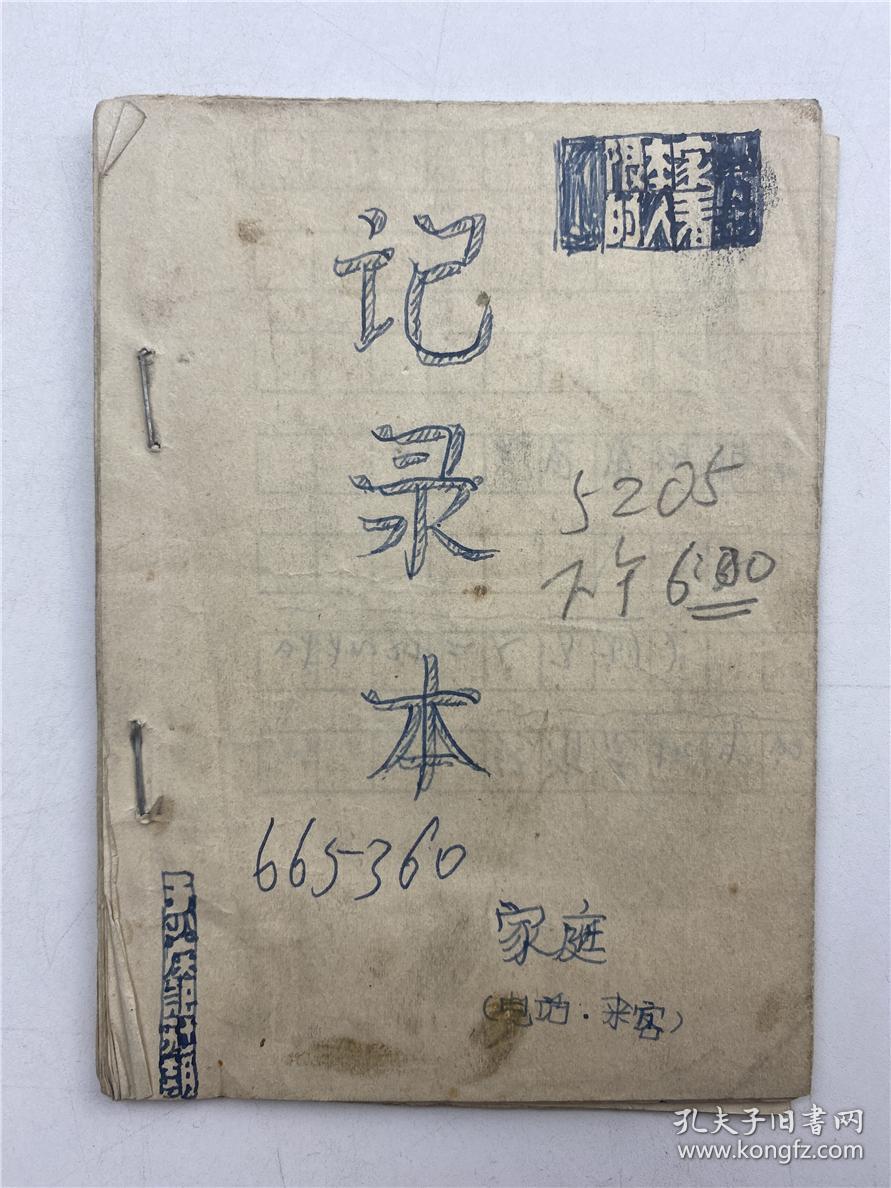 限本家
的人看
记录本
5205
下午6:00
665360
家庭
(电话·来客)
孔夫子旧书网
www.kongfz.com